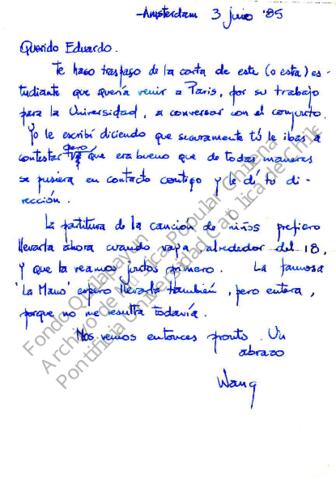 Amsterdam 3 junio '85
Querido Eduardo.
Te hago traspaso de la carta de este (o esta) es-
tudiante que quería venir a París, por su trabajo
para la Universidad, a conversar con el conjunto.
Yo le escribí diciendo que seguramente tú le ibas a
contestar pero que era bueno que de todas maneras
se pusiera en contacto contigo y le dí tu di-
rección.
La partitura de la canción de niños prefiero
llevarla ahora cuando vaya alrededor del 18,
y que la veamos juntos primero. La famosa
'La Mano' espero llevarla también, pero entera,
porque no me resulta todavía.
Nos vemos entonces pronto. Un
abrazo
Wang
Fondo Quilapayún
Archivo de Música Popular Chilena
Pontificia Universidad Católica de Chile